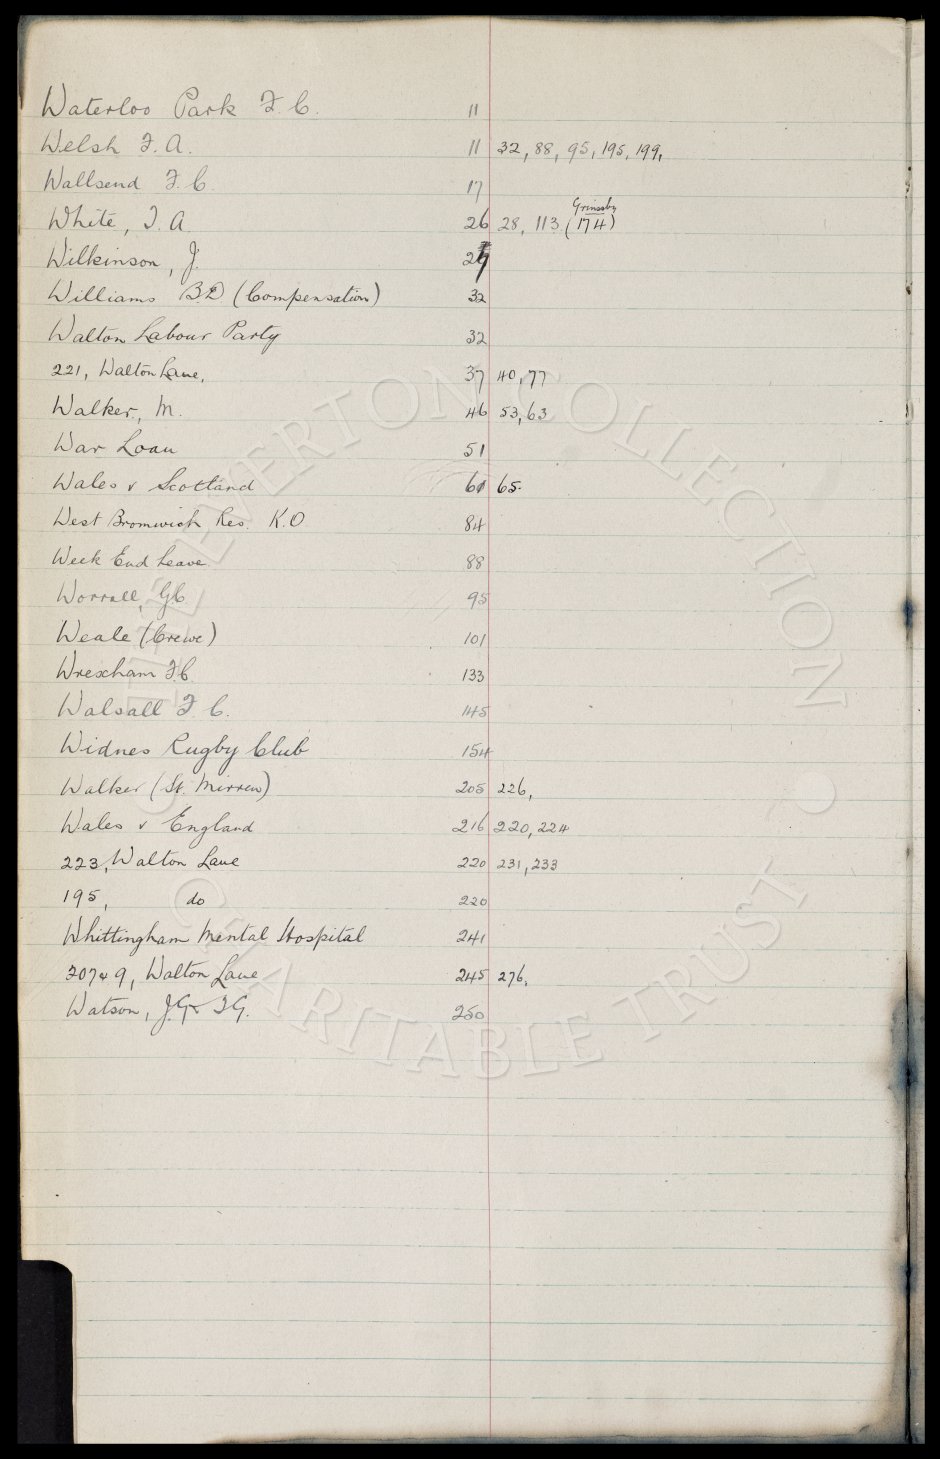 Waterloo Park F.C. 11
Welsh F.A. 11 32, 88, 95, 195, 199,
Wallsend F.C. 17
Grimsby
White, T.A. 26 28, 113 (174)
Wilkinson, J. 27
Williams B.D (Compensation) 32
Walton Labour Party 32
221, Walton Lane, 37 40, 77
Walker, M. 46 53, 63
War Loan 51
Wales v Scotland 61 65.
West Bromwich Res. K.O. 84
Week End Leave 88
Worrall, G.C. 95
Weale (Crewe) 101
Wrexham F.C. 133
Walsall F.C. 145
Widnes Rugby Club 154
Walker (St. Mirren) 205 226,
Wales v England 216 220, 224
223, Walton Lane 220 231, 233
195, do 220
Whittingham Mental Hospital 241
207 & 9, Walton Lane 245 276,
Watson, J.G. & T.G. 250
THE EVERTON COLLECTION
CHARITABLE TRUST